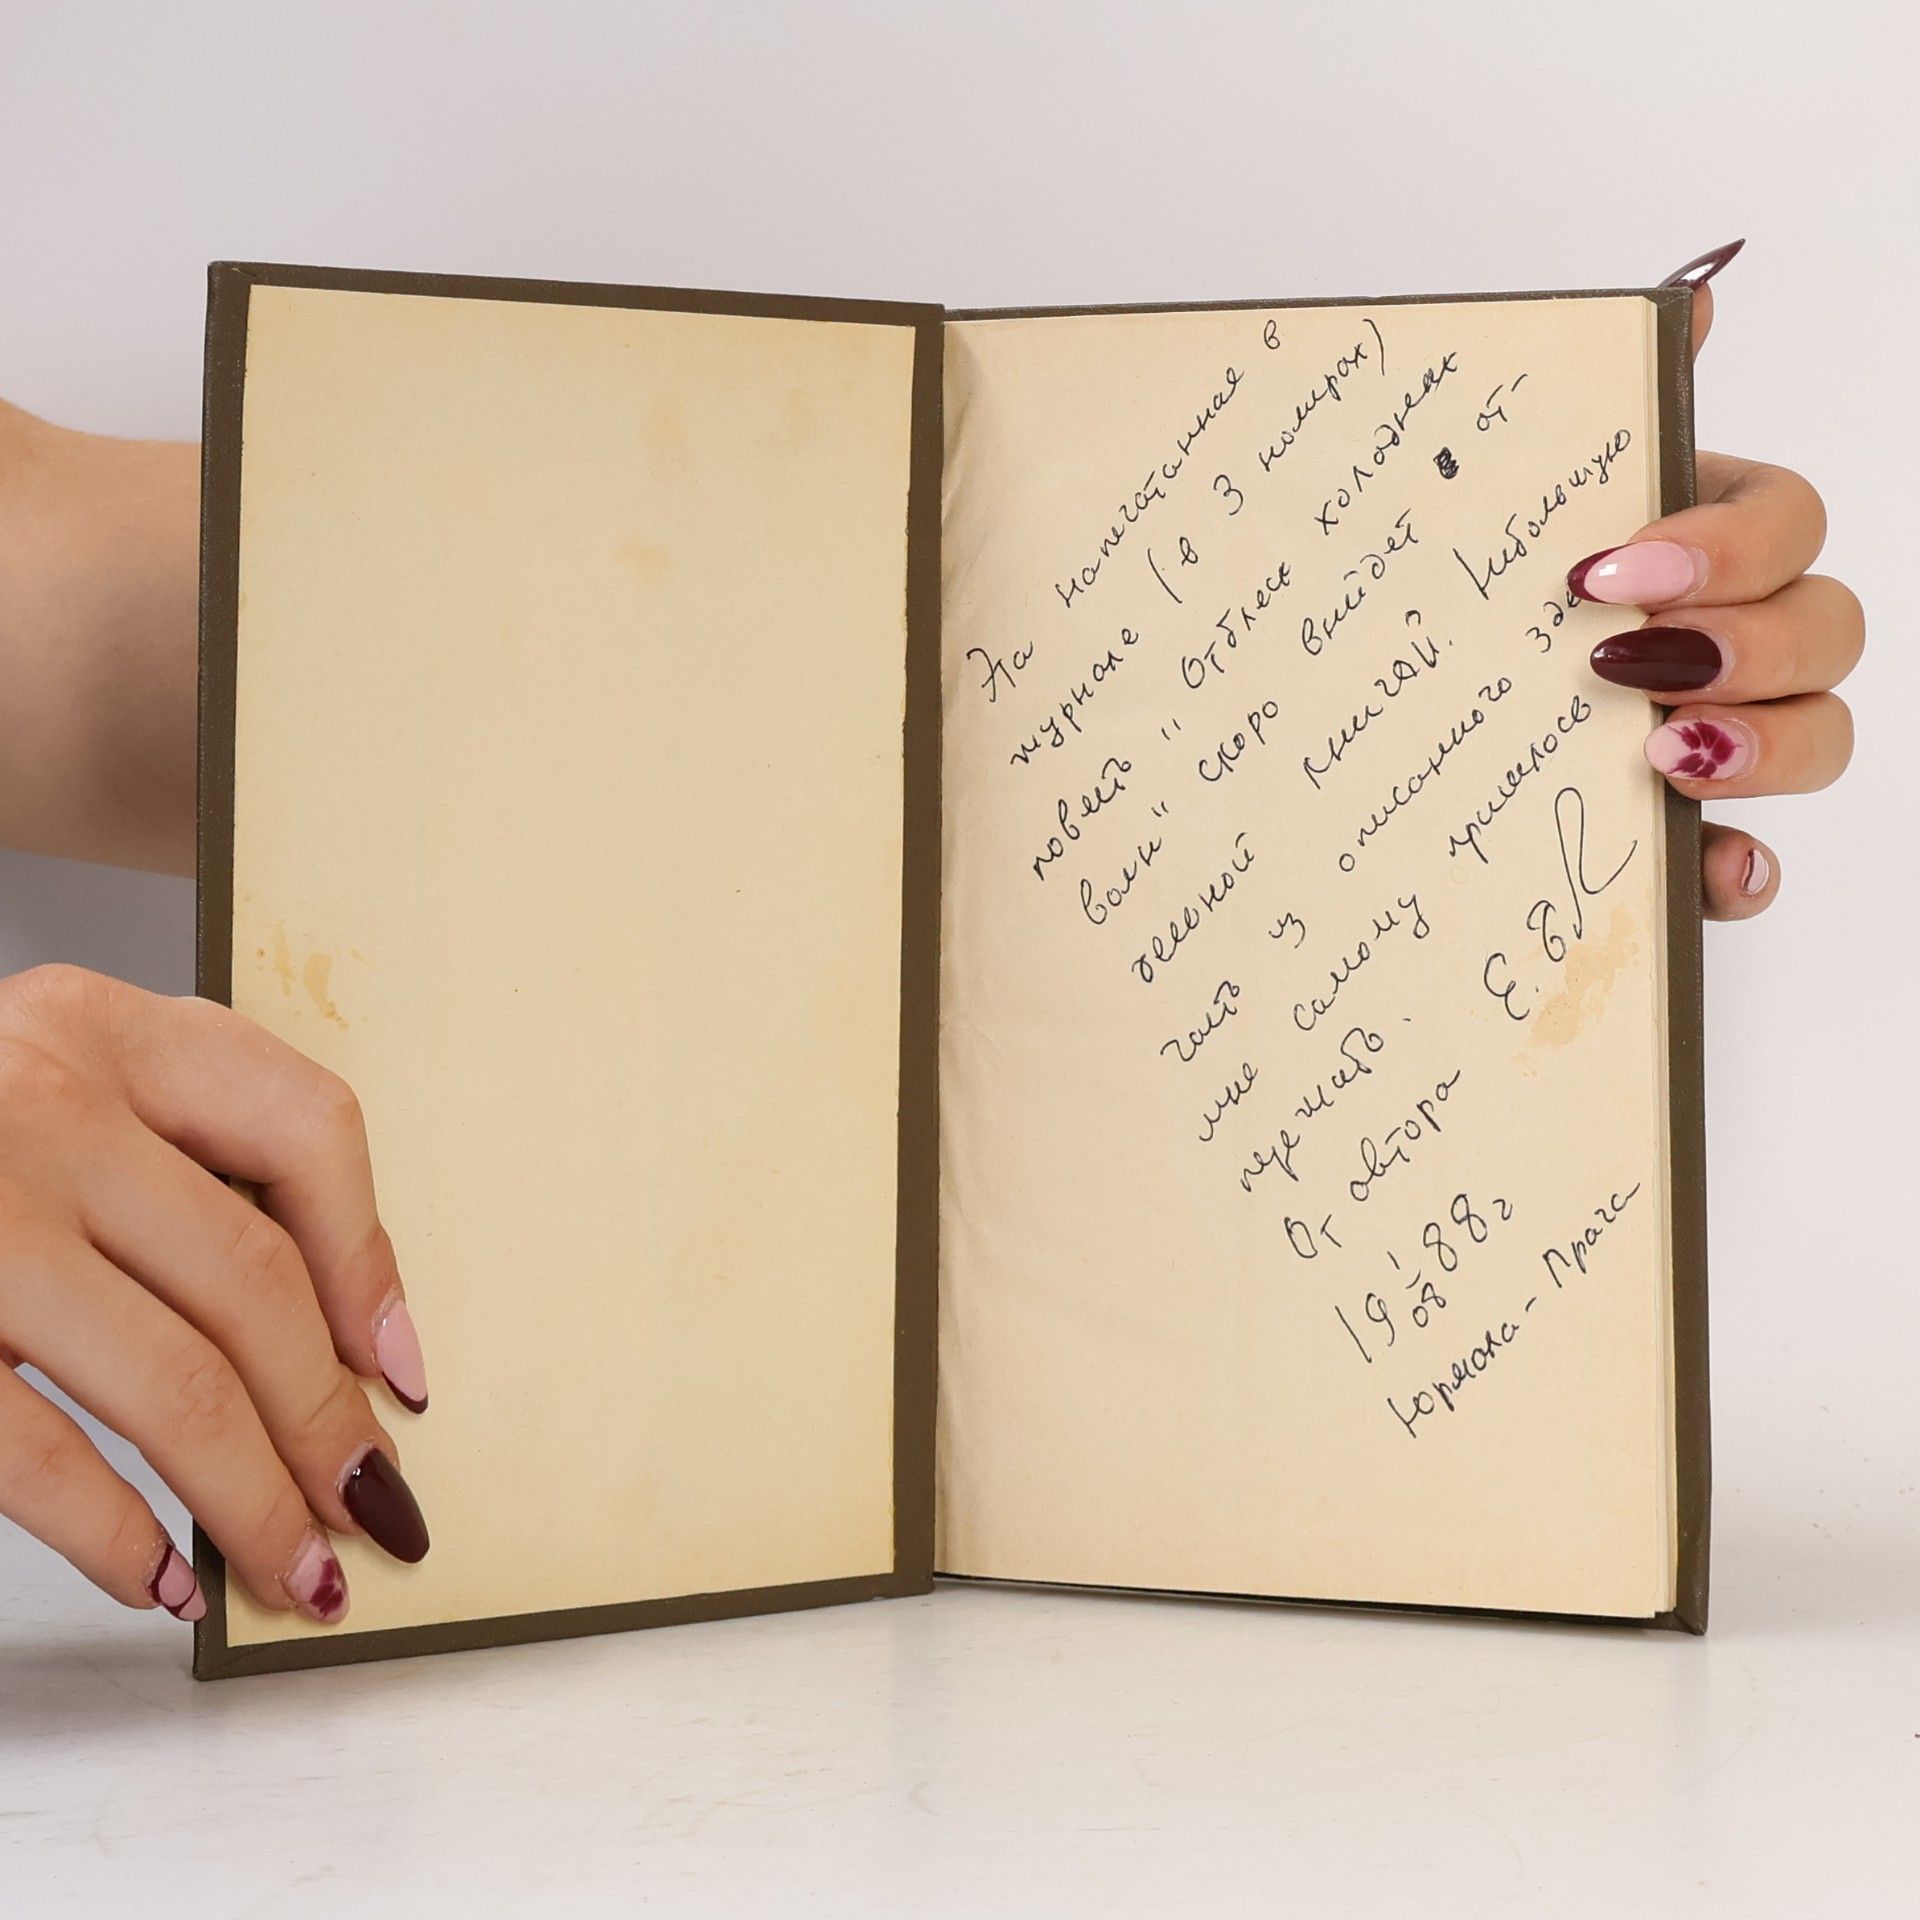 Эта напечатанная в
журнале (в 3 номерах)
повесть "Отблеск холодных
волн" скоро выйдет от-
дельной книгой. Небольшую
часть из описанного зде
мне самому пришлось
пережить.
От автора
19/08 88 г
Юрмала - Прага